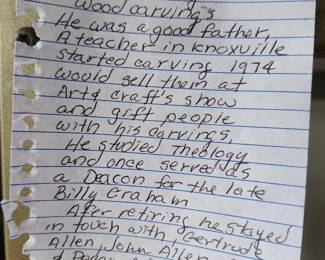 wood carvings
He was a good father,
A teacher in Knoxville
started carving 1974
would sell them at
Art & craft's show
and gift people
with his carvings,
He studied Theology
and once served as
a Deacon for the late
Billy Graham
After retiring he stayed
in touch with, Gertrude
Allen, John Allen,
&